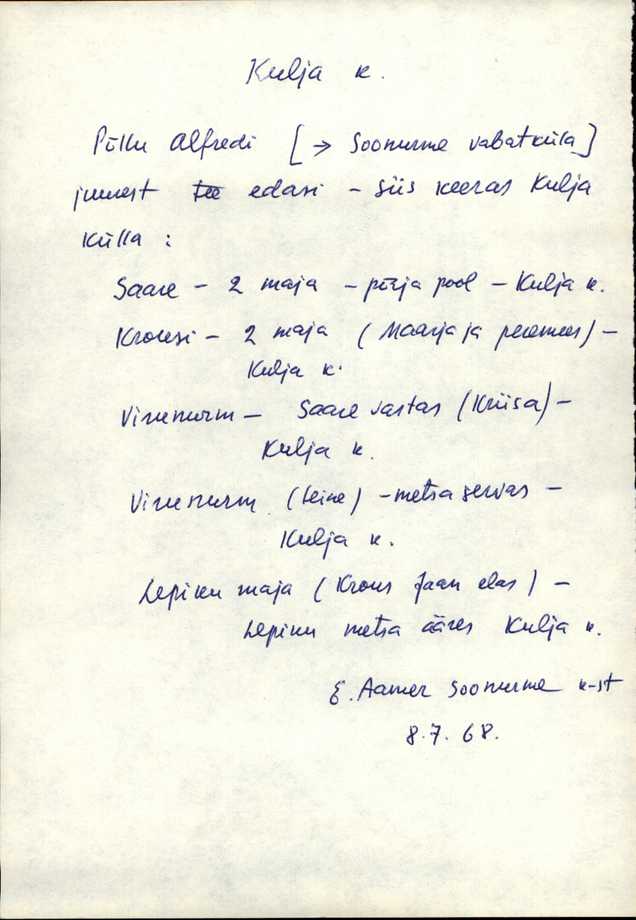 Kulja k.
Põllu Alfredi [→ Soonurme vabatküla]
juurest tee edasi - siis keeras Kulja
külla :
Saare - 2 maja - põhja pool - Kulja k.
Krousi - 2 maja (Maarja ja peremees) -
Kulja k.
Virunurm - Saare vastas (Kriisa) -
Kulja k.
Virunurm (teine) - metsa servas -
Kulja k.
Lepiku maja (Krous Jaan elas) -
Lepiku metsa ääres Kulja k.
E. Aamer Soonurme k-st
8.7.68.